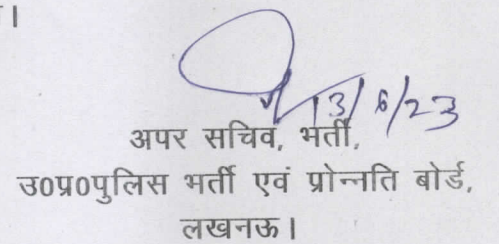 ।
13/6/23
अपर सचिव, भर्ती,
उ0प्र0पुलिस भर्ती एवं प्रोन्नति बोर्ड,
लखनऊ।